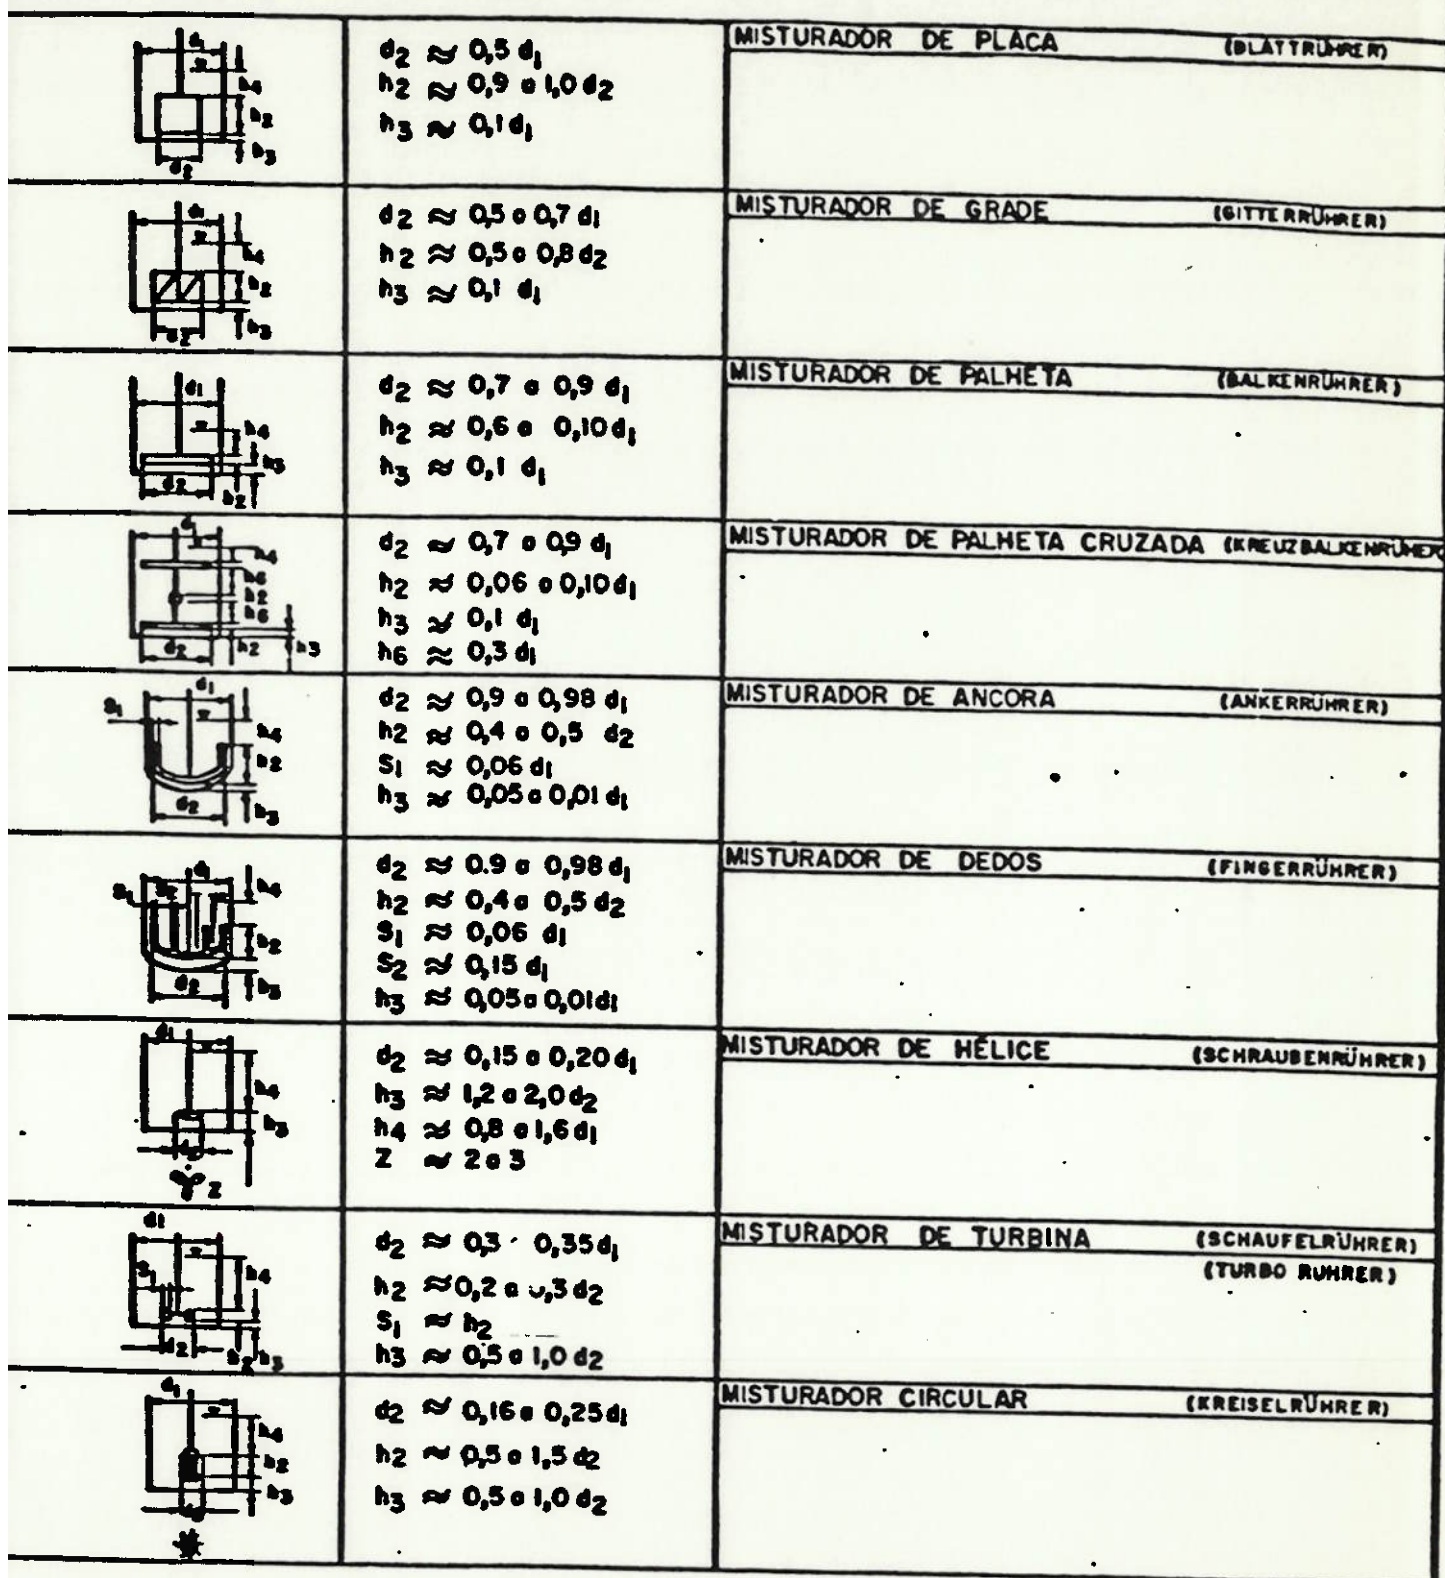 d₁ h₄ h₂ h₃ d₂
d₂ ≈ 0,5 d₁
h₂ ≈ 0,9 a 1,0 d₂
h₃ ≈ 0,1 d₁
MISTURADOR DE PLACA (BLATTRÜHRER)
d₁ h₄ h₂ h₃ d₂
d₂ ≈ 0,5 a 0,7 d₁
h₂ ≈ 0,5 a 0,8 d₂
h₃ ≈ 0,1 d₁
MISTURADOR DE GRADE (GITTERRÜHRER)
d₁ h₄ h₃ d₂ h₂
d₂ ≈ 0,7 a 0,9 d₁
h₂ ≈ 0,6 a 0,10 d₁
h₃ ≈ 0,1 d₁
MISTURADOR DE PALHETA (BALKENRÜHRER)
d₁ h₄ h₆ h₂ h₆ d₂ h₂ h₃
d₂ ≈ 0,7 a 0,9 d₁
h₂ ≈ 0,06 a 0,10 d₁
h₃ ≈ 0,1 d₁
h₆ ≈ 0,3 d₁
MISTURADOR DE PALHETA CRUZADA (KREUZBALKENRÜHER
d₁ S₁ h₄ h₂ d₂ h₃
d₂ ≈ 0,9 a 0,98 d₁
h₂ ≈ 0,4 a 0,5 d₂
S₁ ≈ 0,06 d₁
h₃ ≈ 0,05 a 0,01 d₁
MISTURADOR DE ANCORA (ANKERRÜHRER)
d₁ S₁ S₂ h₄ h₂ d₂ h₃
d₂ ≈ 0.9 a 0,98 d₁
h₂ ≈ 0,4 a 0,5 d₂
S₁ ≈ 0,06 d₁
S₂ ≈ 0,15 d₁
h₃ ≈ 0,05 a 0,01 d₁
MISTURADOR DE DEDOS (FINGERRÜHRER)
d₁ h₄ h₃ d₂ Z
d₂ ≈ 0,15 a 0,20 d₁
h₃ ≈ 1,2 a 2,0 d₂
h₄ ≈ 0,8 a 1,6 d₁
Z ≈ 2 a 3
MISTURADOR DE HÉLICE (SCHRAUBENRÜHRER)
d₁ S₁ h₄ d₂ h₂ h₃
d₂ ≈ 0,3 · 0,35 d₁
h₂ ≈ 0,2 a 0,3 d₂
S₁ ≈ h₂
h₃ ≈ 0,5 a 1,0 d₂
MISTURADOR DE TURBINA (SCHAUFELRÜHRER)
(TURBO RUHRER)
d₁ h₄ h₂ h₃ d₂
d₂ ≈ 0,16 a 0,25 d₁
h₂ ≈ 0,5 a 1,5 d₂
h₃ ≈ 0,5 a 1,0 d₂
MISTURADOR CIRCULAR (KREISELRÜHRER)